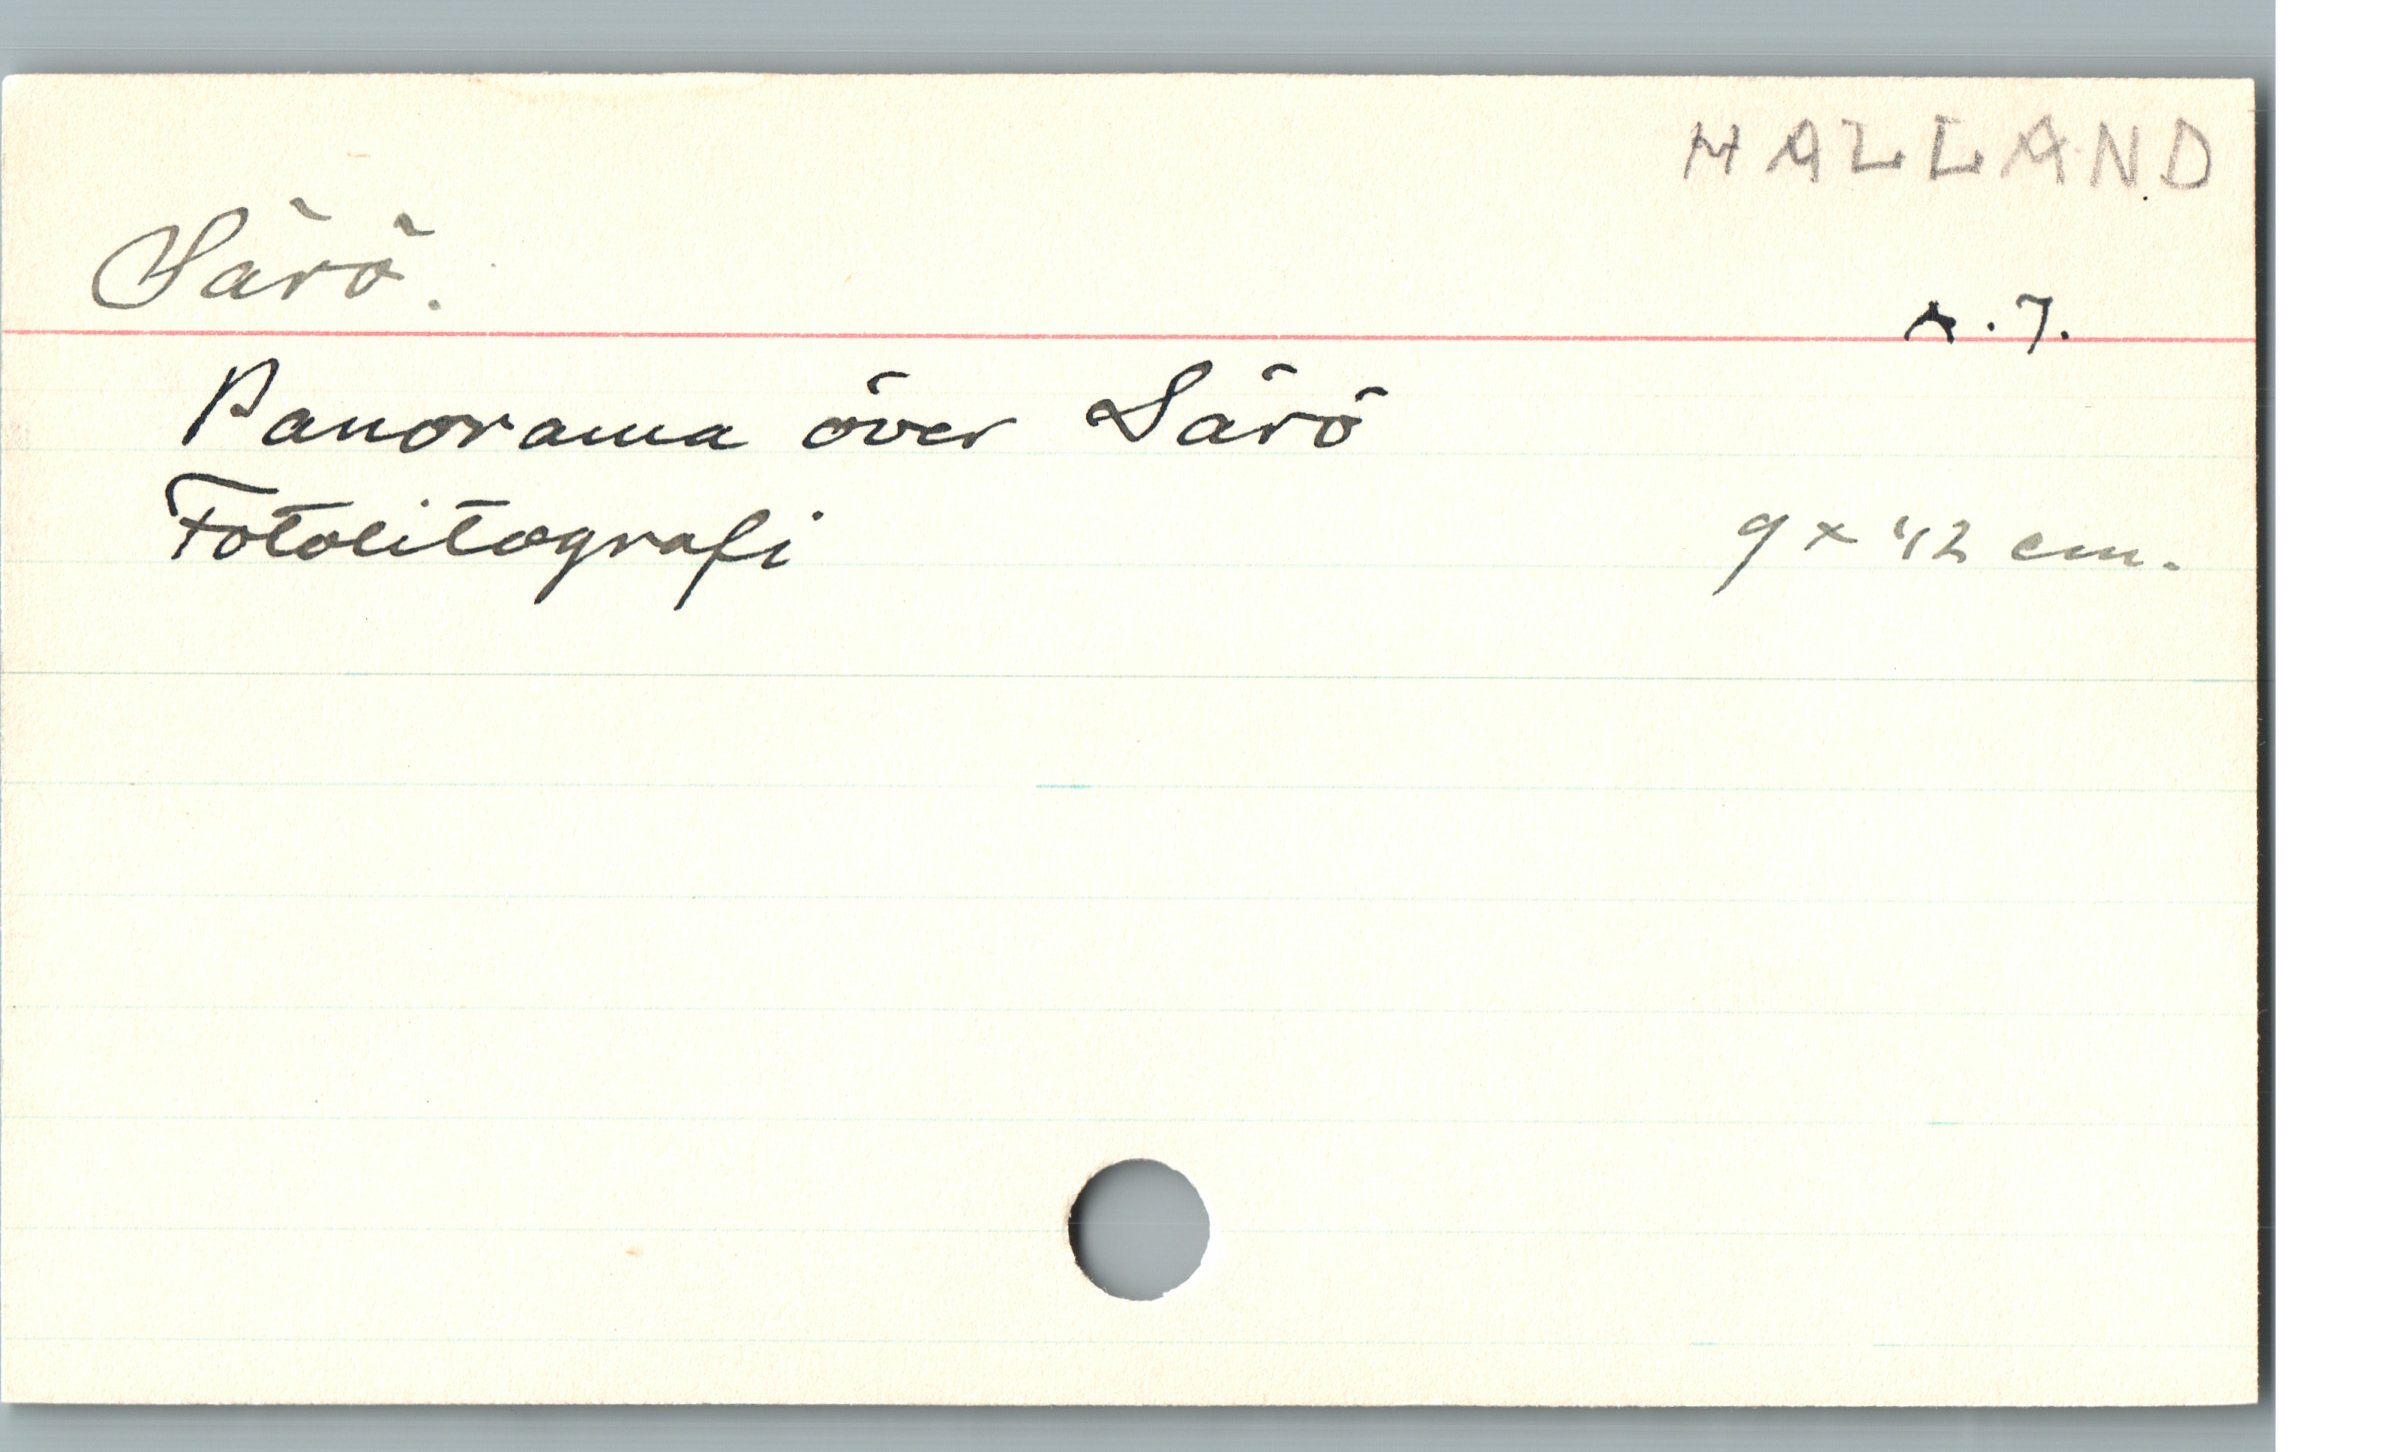 HALLAND
Särö.
A. 7.
Panorama över Särö
Fotolitografi 9 x 42 cm.